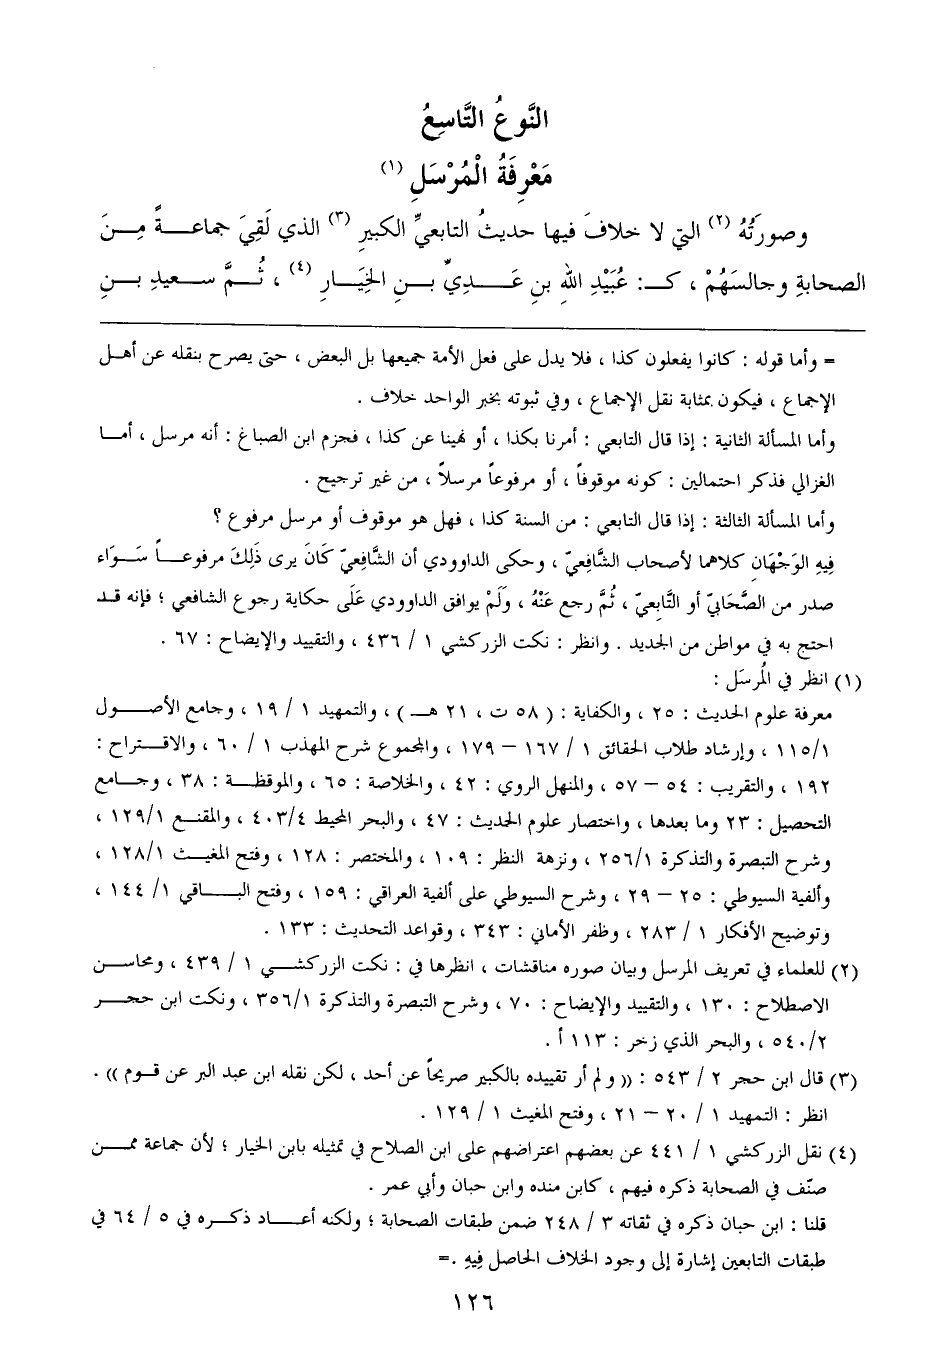 النَّوعُ التَّاسِعُ
مَعْرِفَةُ الْمُرْسَلِ (١)
وصورَتُهُ (٢) التي لا خلافَ فيها حديثُ التابعيِّ الكبيرِ (٣) الذي لَقِيَ جماعــةً مِــنَ
الصحابةِ وجالسَهُمْ ، كـ: عُبَيْدِ اللهِ بنِ عَــدِيِّ بــنِ الخِيَــارِ (٤) ، ثُــمَّ ســعيدِ بــنِ
= وأما قوله : كانوا يفعلون كذا ، فلا يدل على فعل الأمة جميعها بل البعض ، حتى يصرح بنقله عن أهــل
الإجماع ، فيكون بمثابة نقل الإجماع ، وفي ثبوته بخبر الواحد خلاف .
وأما المسألة الثانية : إذا قال التابعي : أمرنا بكذا ، أو نهينا عن كذا ، فجزم ابن الصباغ : أنه مرسل ، أمــا
الغزالي فذكر احتمالين : كونه موقوفاً ، أو مرفوعاً مرسلاً ، من غير ترجيح .
وأما المسألة الثالثة : إذا قال التابعي : من السنة كذا ، فهل هو موقوف أو مرسل مرفوع ؟
فِيهِ الوَجْهَانِ كلاهما لأصحاب الشَّافِعيِّ ، وحكى الداوودي أن الشَّافِعيّ كَانَ يرى ذَلِكَ مرفوعــاً سَــوَاء
صدر من الصَّحَابيّ أو التَّابِعيِّ ، ثُمَّ رجع عَنْهُ ، ولَمْ يوافق الداوودي عَلَى حكاية رجوع الشافعي ؛ فإنه قــد
احتج به في مواطن من الجديد . وانظر : نكت الزركشي ١ / ٤٣٦ ، والتقييد والإيضاح : ٦٧ .
(١) انظر في المُرسَل :
معرفة علوم الحديث : ٢٥ ، والكفاية : ( ٥٨ ت ، ٢١ هــ ) ، والتمهيد ١ / ١٩ ، وجامع الأصــول
١١٥/١ ، وإرشاد طلاب الحقائق ١ / ١٦٧ – ١٧٩ ، والمجموع شرح المهذب ١ / ٦٠ ، والاقــتراح :
١٩٢ ، والتقريب : ٥٤ – ٥٧ ، والمنهل الروي : ٤٢ ، والخلاصة : ٦٥ ، والموقظــة : ٣٨ ، وجــامع
التحصيل : ٢٣ وما بعدها ، واختصار علوم الحديث : ٤٧ ، والبحر المحيط ٤٠٣/٤ ، والمقنــع ١٢٩/١ ،
وشرح التبصرة والتذكرة ٢٥٦/١ ، ونزهة النظر : ١٠٩ ، والمختصر : ١٢٨ ، وفتح المغيــث ١٢٨/١ ،
وألفية السيوطي : ٢٥ – ٢٩ ، وشرح السيوطي على ألفية العراقي : ١٥٩ ، وفتح البــاقي ١/ ١٤٤ ،
وتوضيح الأفكار ١ / ٢٨٣ ، وظفر الأماني : ٣٤٣ ، وقواعد التحديث : ١٣٣ .
(٢) للعلماء في تعريف المرسل وبيان صوره مناقشات ، انظرها في : نكت الزركشــي ١ / ٤٣٩ ، ومحاســن
الاصطلاح : ١٣٠ ، والتقييد والإيضاح : ٧٠ ، وشرح التبصرة والتذكرة ٣٥٦/١ ، ونكت ابن حجــر
٥٤٠/٢ ، والبحر الذي زخر : ١١٣ أ .
(٣) قال ابن حجر ٢ / ٥٤٣ : (( ولم أر تقييده بالكبير صريحاً عن أحد ، لكن نقله ابن عبد البر عن قــوم )) .
انظر : التمهيد ١ / ٢٠ – ٢١ ، وفتح المغيث ١ / ١٢٩ .
(٤) نقل الزركشي ١ / ٤٤١ عن بعضهم اعتراضهم على ابن الصلاح في تمثيله بابن الخيار ؛ لأن جماعة ممــن
صنّف في الصحابة ذكره فيهم ، كابن منده وابن حبان وأبي عمر .
قلنا : ابن حبان ذكره في ثقاته ٣ / ٢٤٨ ضمن طبقات الصحابة ؛ ولكنه أعــاد ذكــره في ٥ / ٦٤ في
طبقات التابعين إشارة إلى وجود الخلاف الحاصل فِيهِ .=
١٢٦